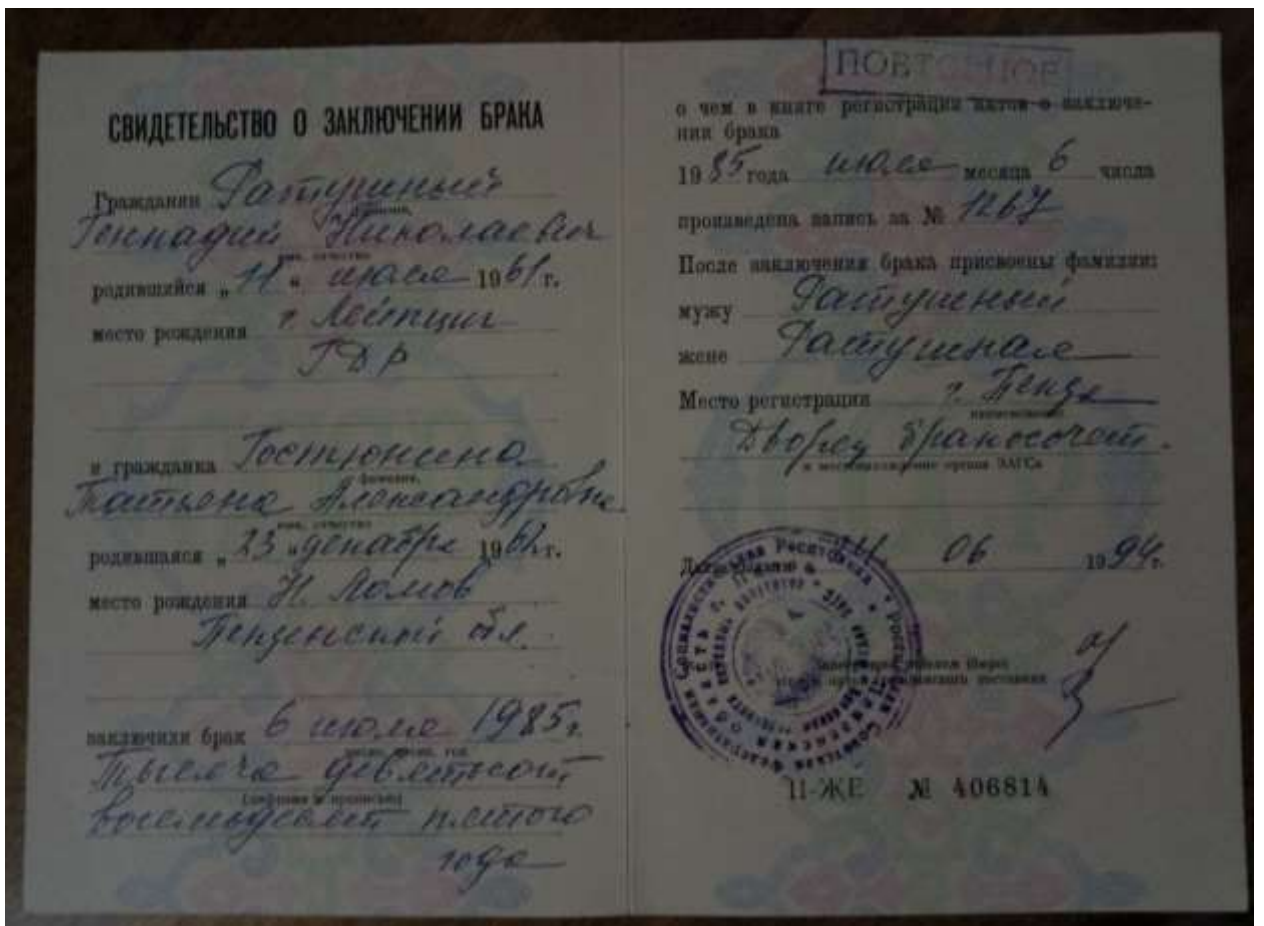 СВИДЕТЕЛЬСТВО О ЗАКЛЮЧЕНИИ БРАКА
Гражданин Ратушный
фамилия,
Геннадий Николаевич
имя, отчество
родившийся „11“ июля 1961 г.
место рождения г. Лейпциг
ГДР
и гражданка Гостюнина
фамилия,
Татьяна Александровна
имя, отчество
родившаяся „23“ декабря 1962 г.
место рождения Н. Ломов
Пензенской обл.
заключили брак 6 июля 1985 г.
число, месяц, год
тысяча девятьсот
(цифрами и прописью)
восемьдесят пятого
года
ПОВТОРНОЕ
о чем в книге регистрации актов о заключе-
нии брака
1985 года июля месяца 6 числа
произведена запись за № 1267
После заключения брака присвоены фамилии:
мужу Ратушный
жене Ратушная
Место регистрации г. Пенза
наименование
Дворец бракосочет.
и местонахождение органа ЗАГСа
Дата выдачи 06 1994 г.
II-ЖЕ № 406814